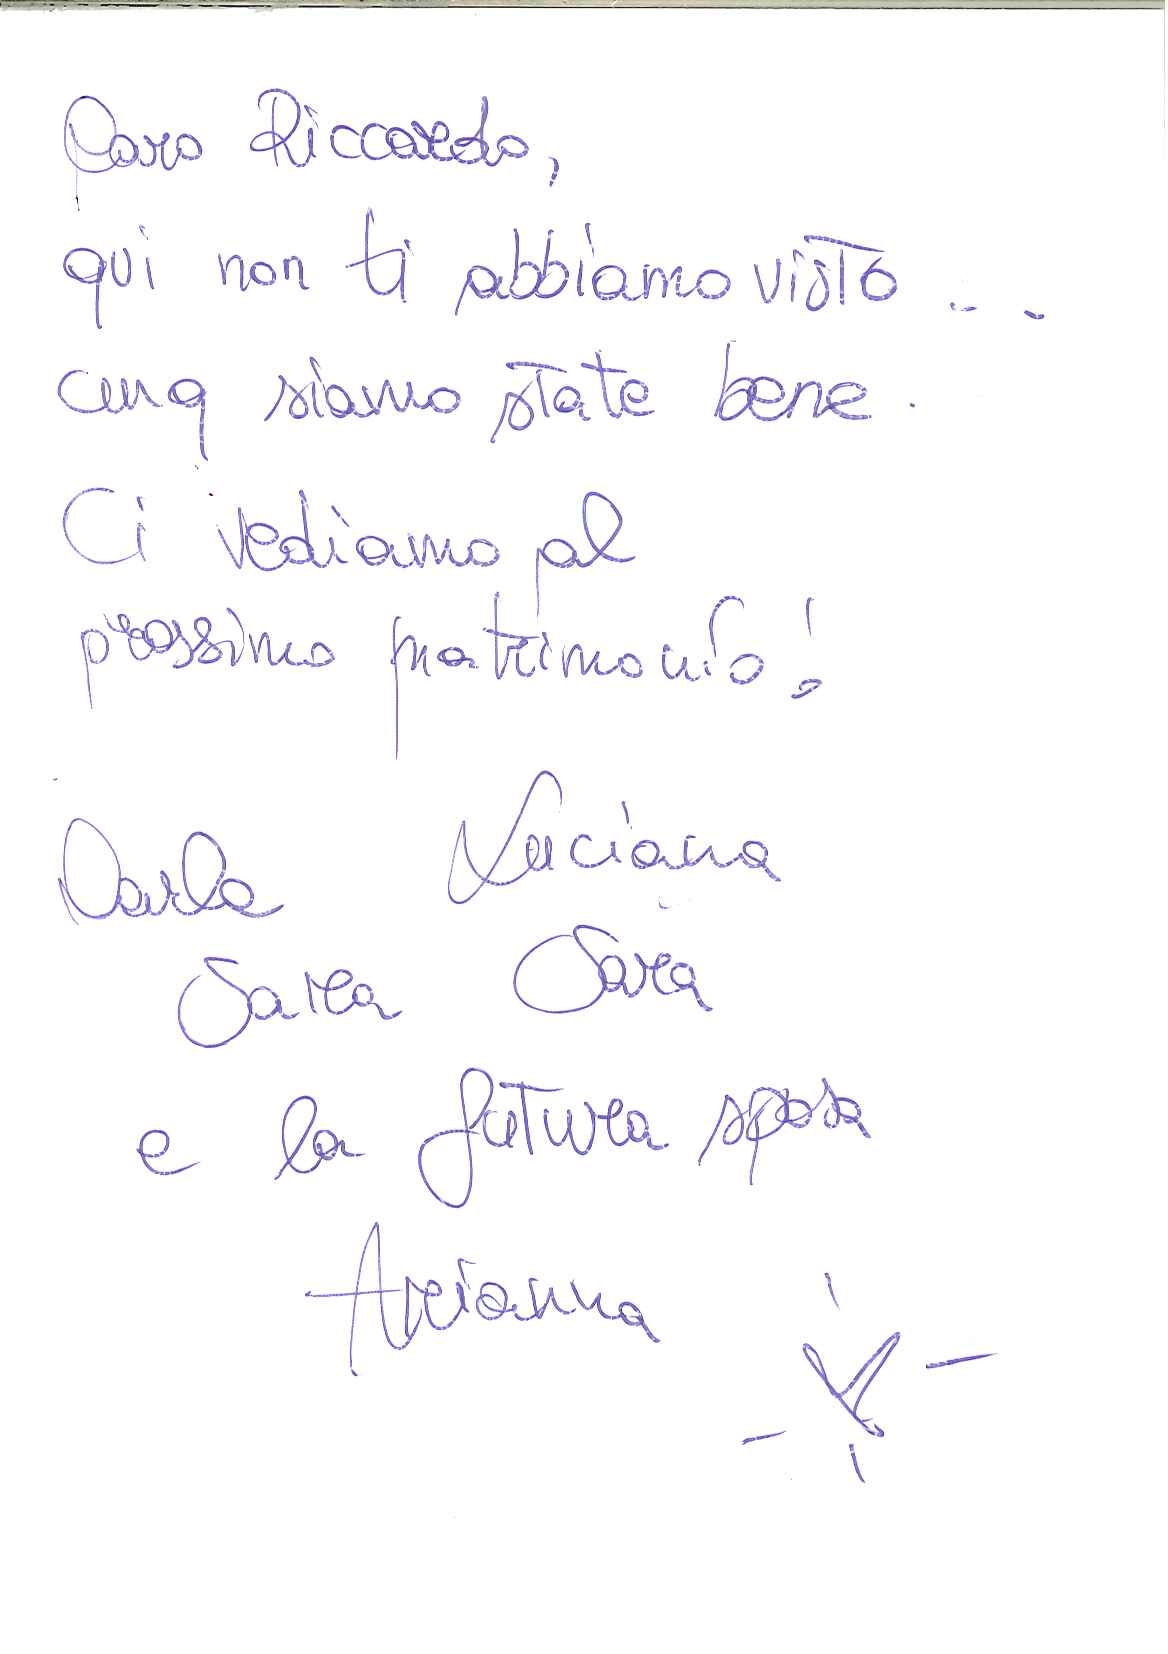 Caro Riccardo,
qui non ti abbiamo visto ...
cmq siamo state bene.
Ci vediamo al
prossimo matrimonio!
Carla Luciana
Sara Sara
e la futura sposa
Arianna